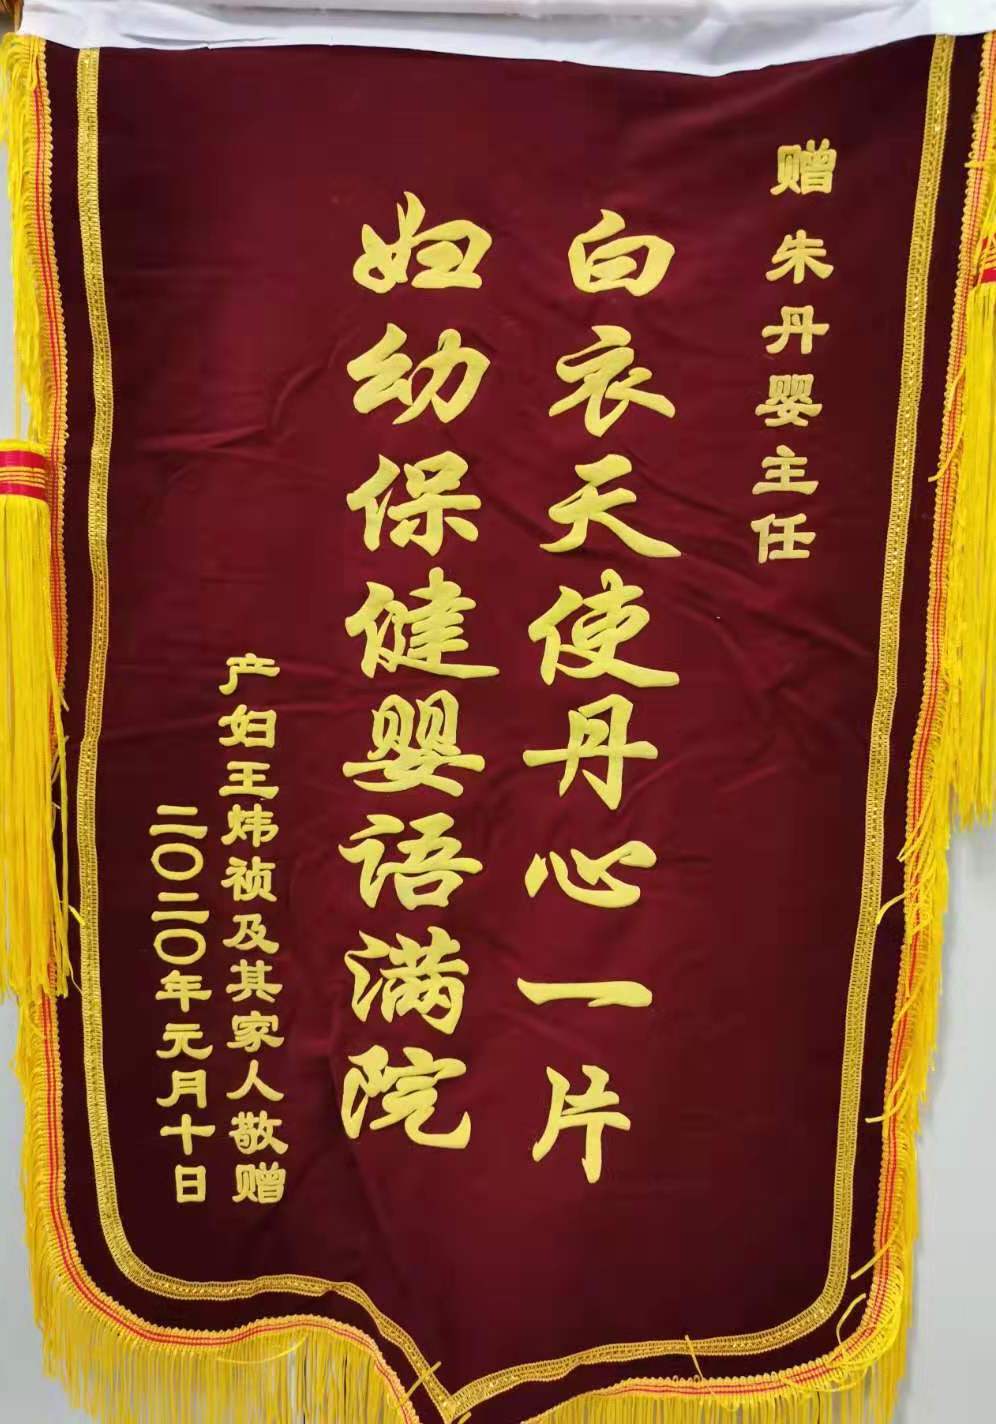 赠朱丹婴主任
白衣天使丹心一片
妇幼保健婴语满院
产妇王炜祯及其家人敬赠
二〇二〇年元月十日